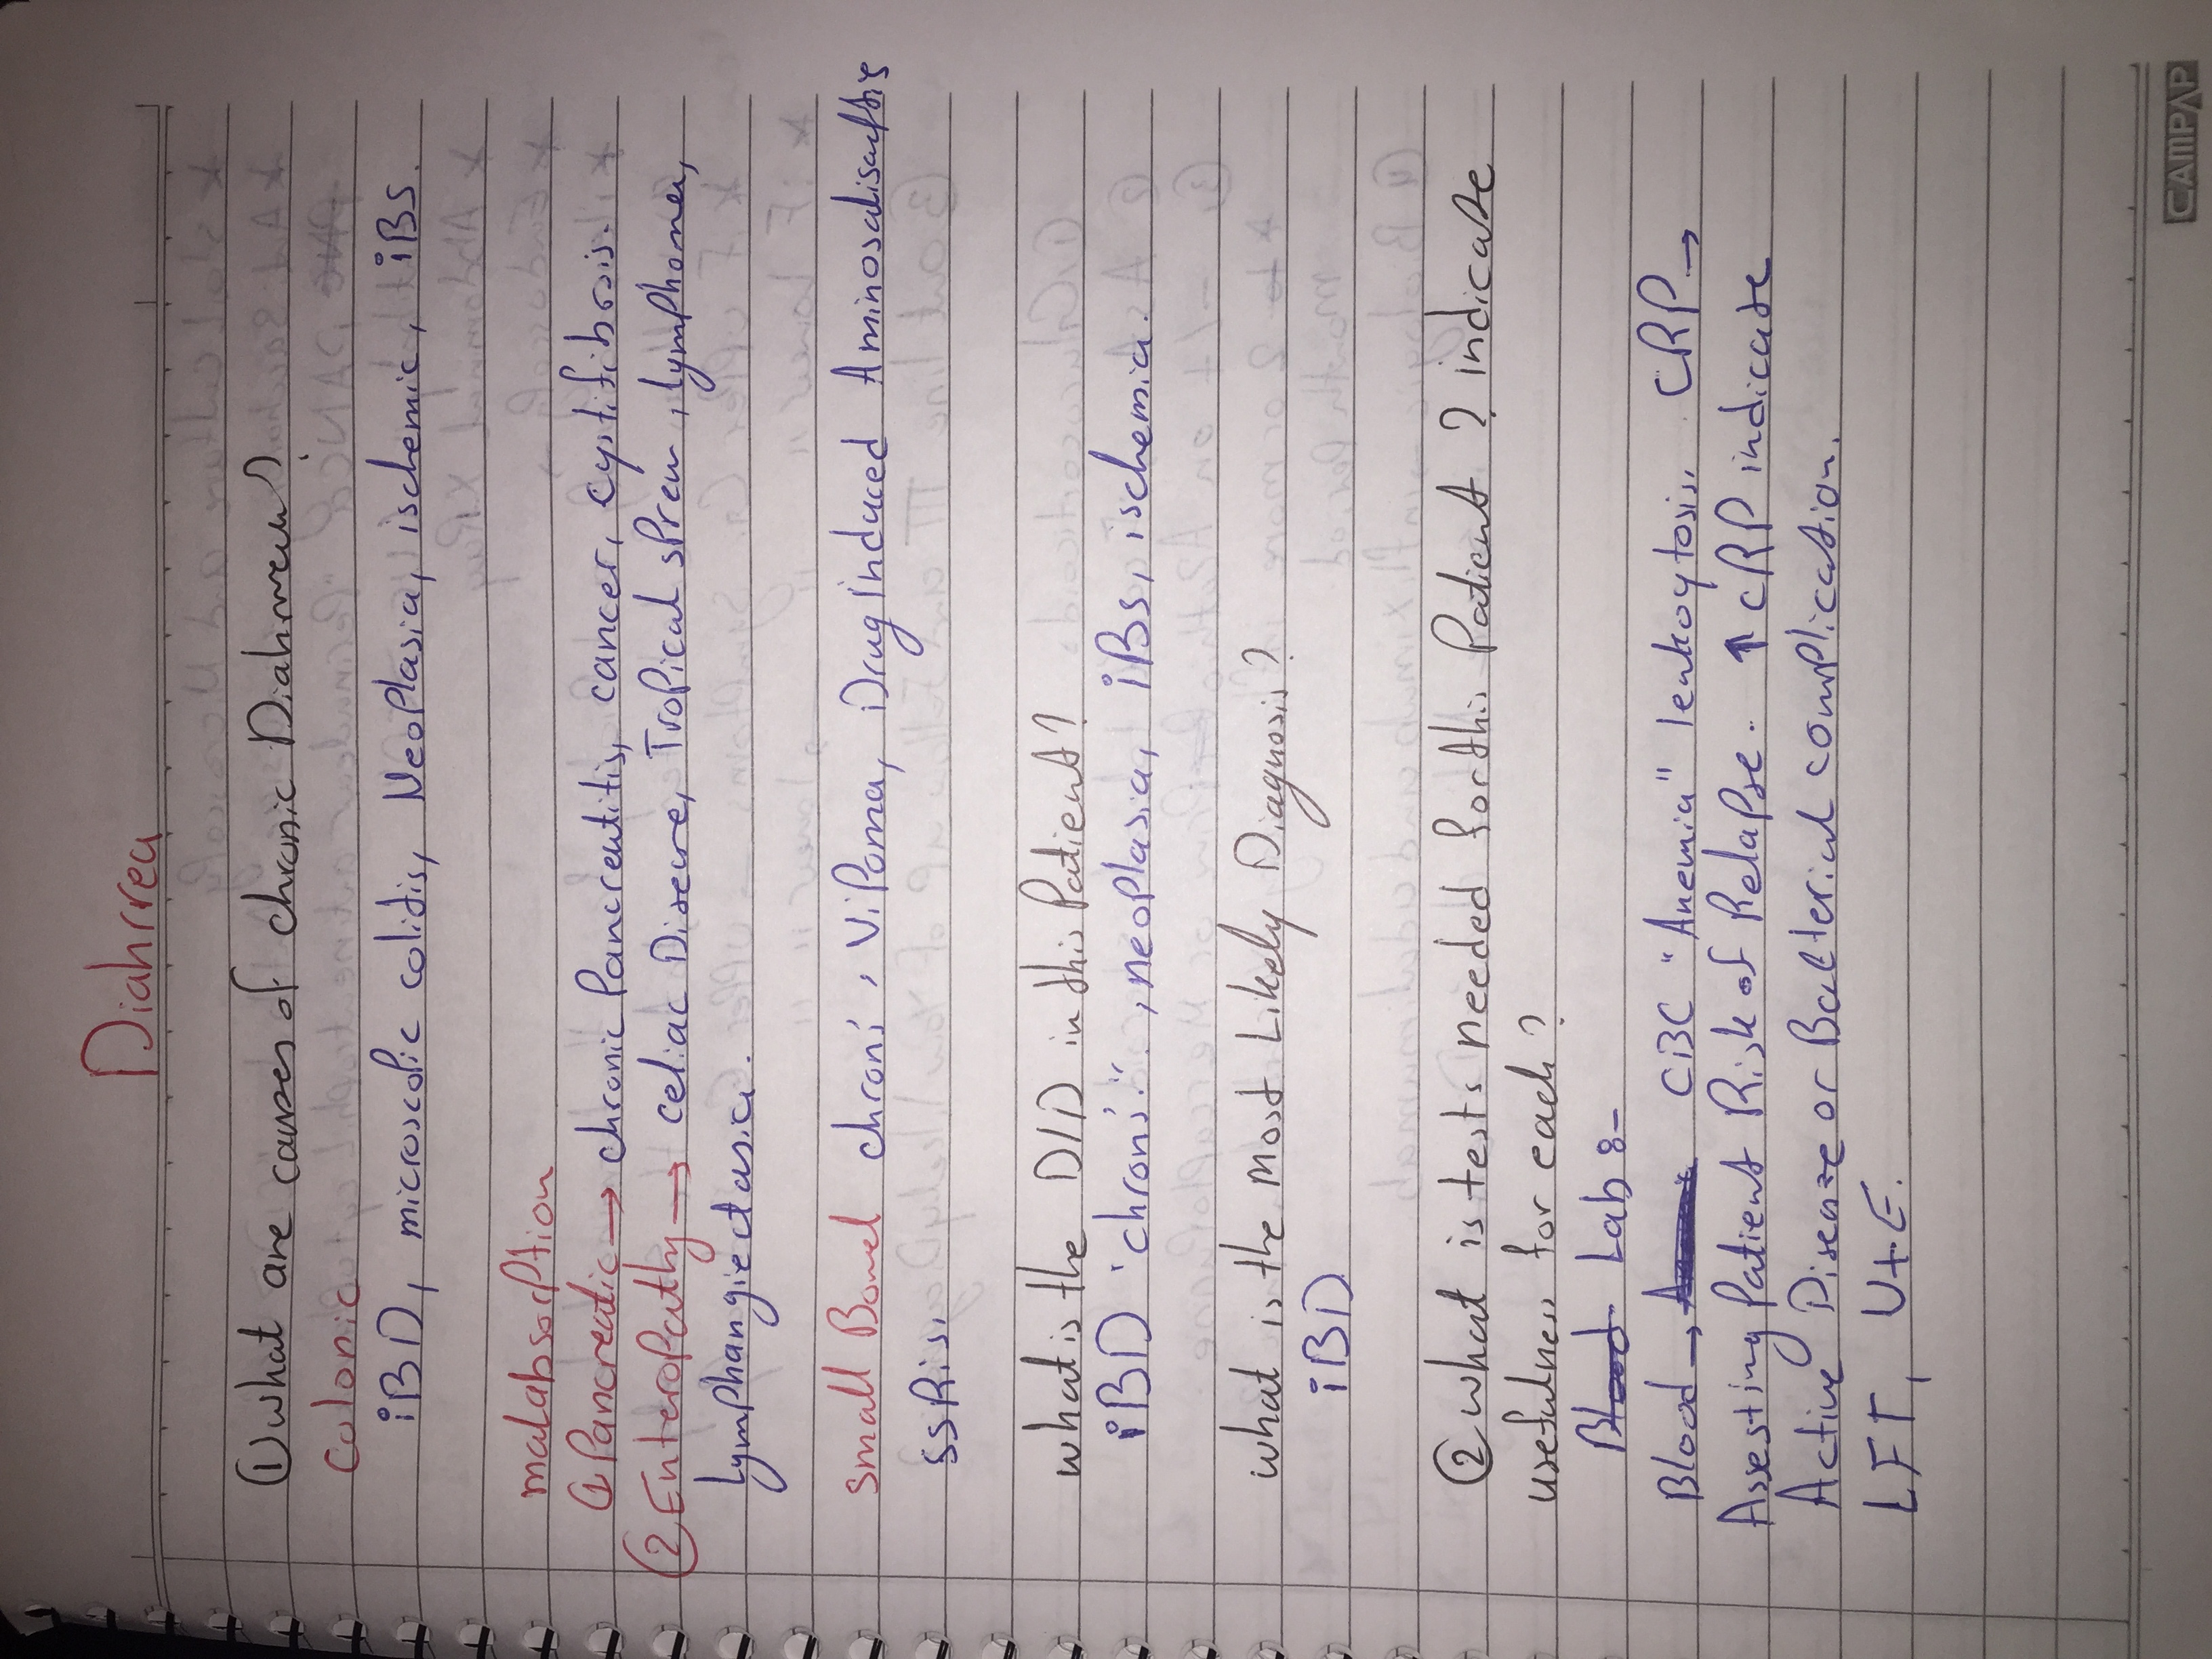 Diahrrea
① what are causes of chronic Diahrrea?
Colonic
iBD, microscopic colitis, Neoplasia, ischemic, iBS.
malabsorption
① Pancreatic → chronic Pancreatitis, cancer, cystifibrosis.
② Enteropathy → celiac Disease, Tropical sprew, lymphoma,
Lymphangiectasia.
Small Bowel chron's, ViPoma, Drug induced Aminosalisaftis
SSRis,
what is the D/D in this Patient?
iBD "chron's", neoplasia, iBS, ischemia.
what is the most Likely Diagnosis?
iBD
② what is tests needed for this Patient? indicate
usefulness for each?
Blood Labs:-
Blood → CBC "Anemia" leukoytosis, CRP →
Assesting Patient Risk of Relapse. ↑ CRP indicate
Active Disease or Bacterial complication.
LFT, U+E.
CAMPAP